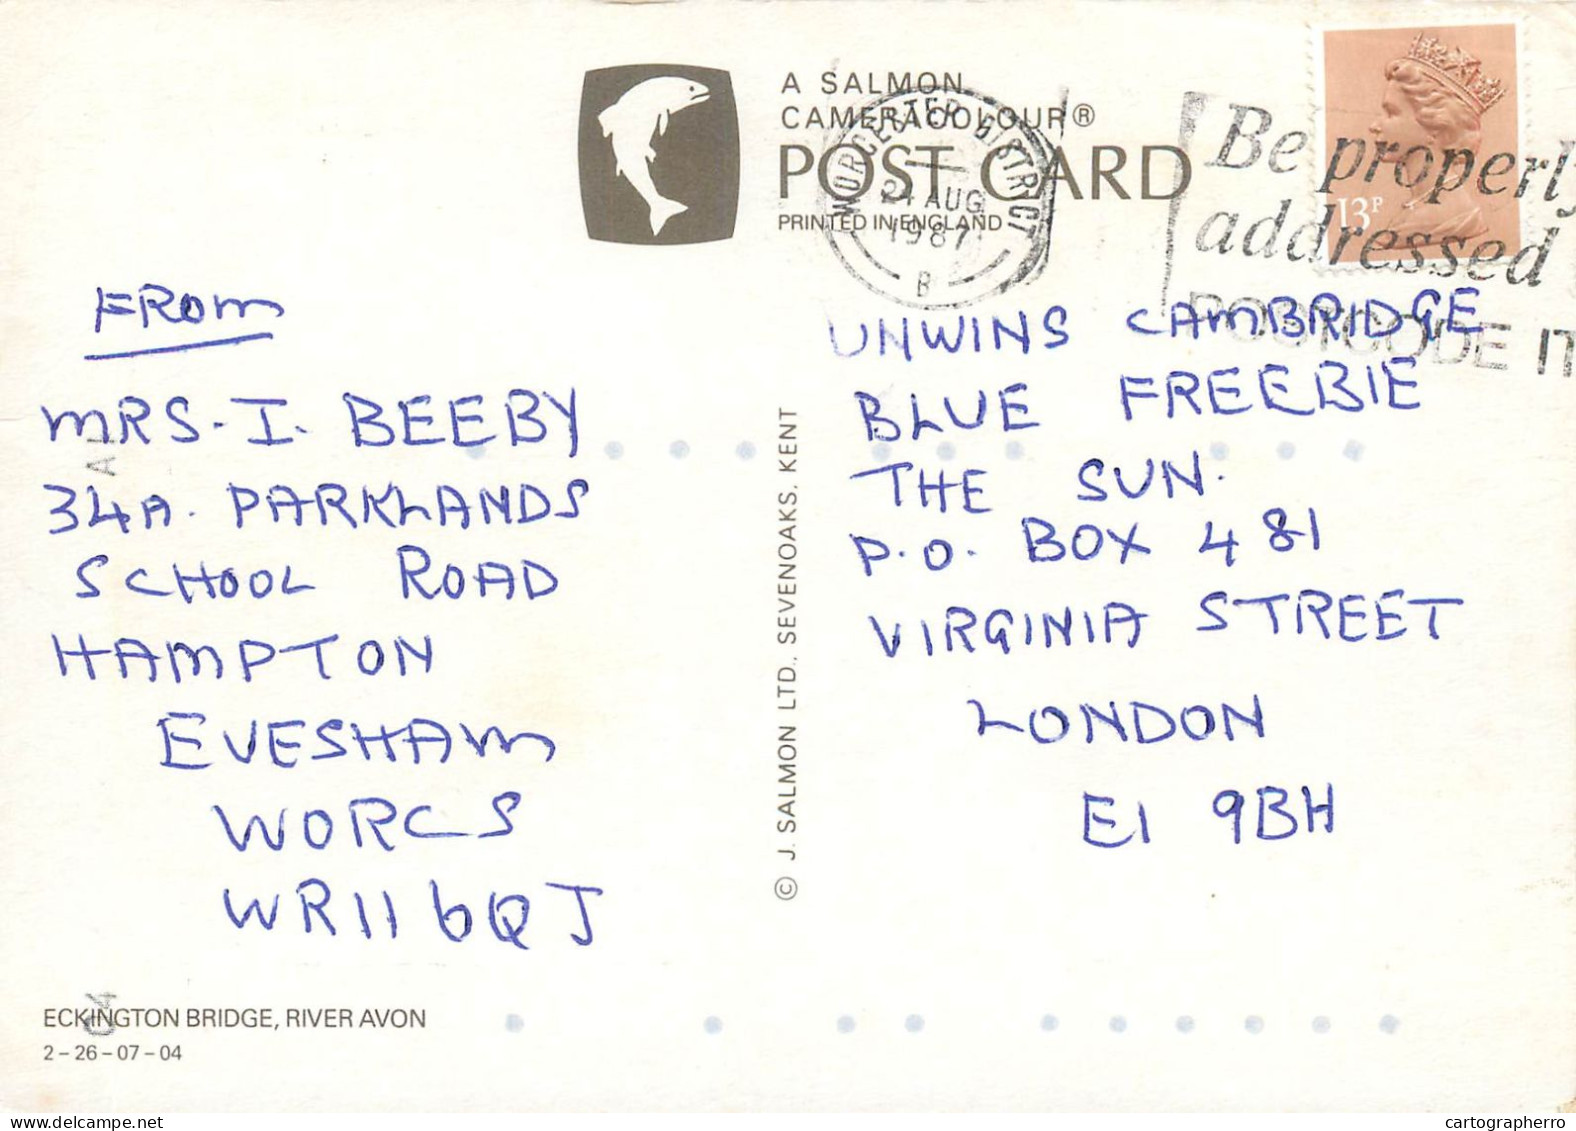 A SALMON
CAMERACOLOUR®
POST CARD
PRINTED IN ENGLAND
WORCESTER DISTRICT
AUG
1987
B
Be properly
addressed
POSTCODE IT
13P
FROM
MRS. I. BEEBY
34A. PARKLANDS
SCHOOL ROAD
HAMPTON
EVESHAM
WORCS
WR11 6QJ
© J. SALMON LTD., SEVENOAKS, KENT
UNWINS CAMBRIDGE
BLUE FREEBIE
THE SUN.
P.O. BOX 481
VIRGINIA STREET
LONDON
E1 9BH
ECKINGTON BRIDGE, RIVER AVON
2-26-07-04
cartographerro